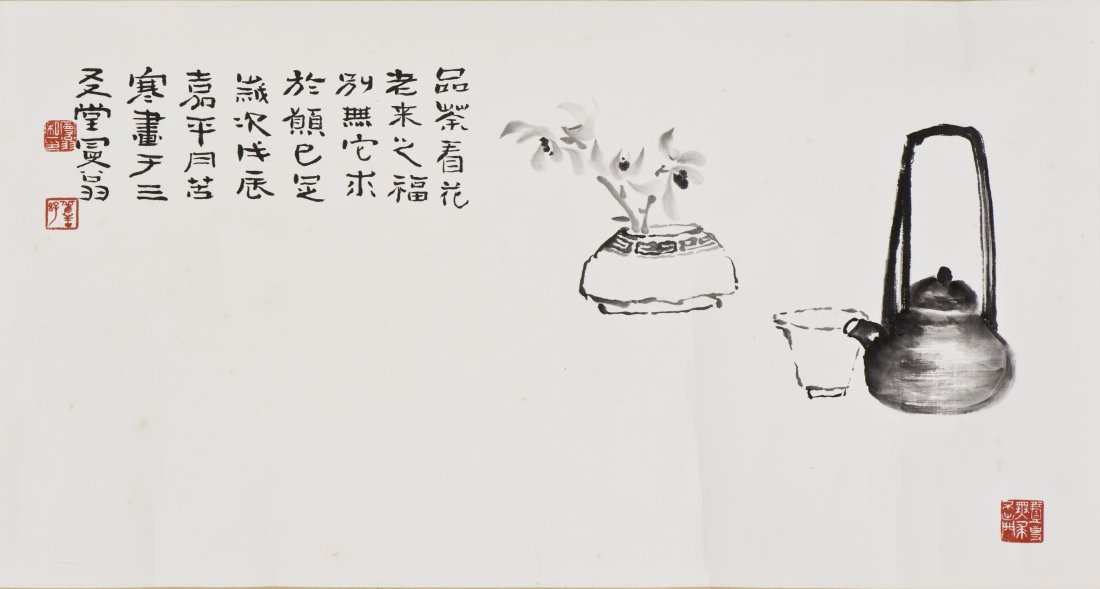 品茶看花
老来之福
别無它求
於願已足
歲次戊辰
嘉平月苦
寒畫于三
友堂曼翁